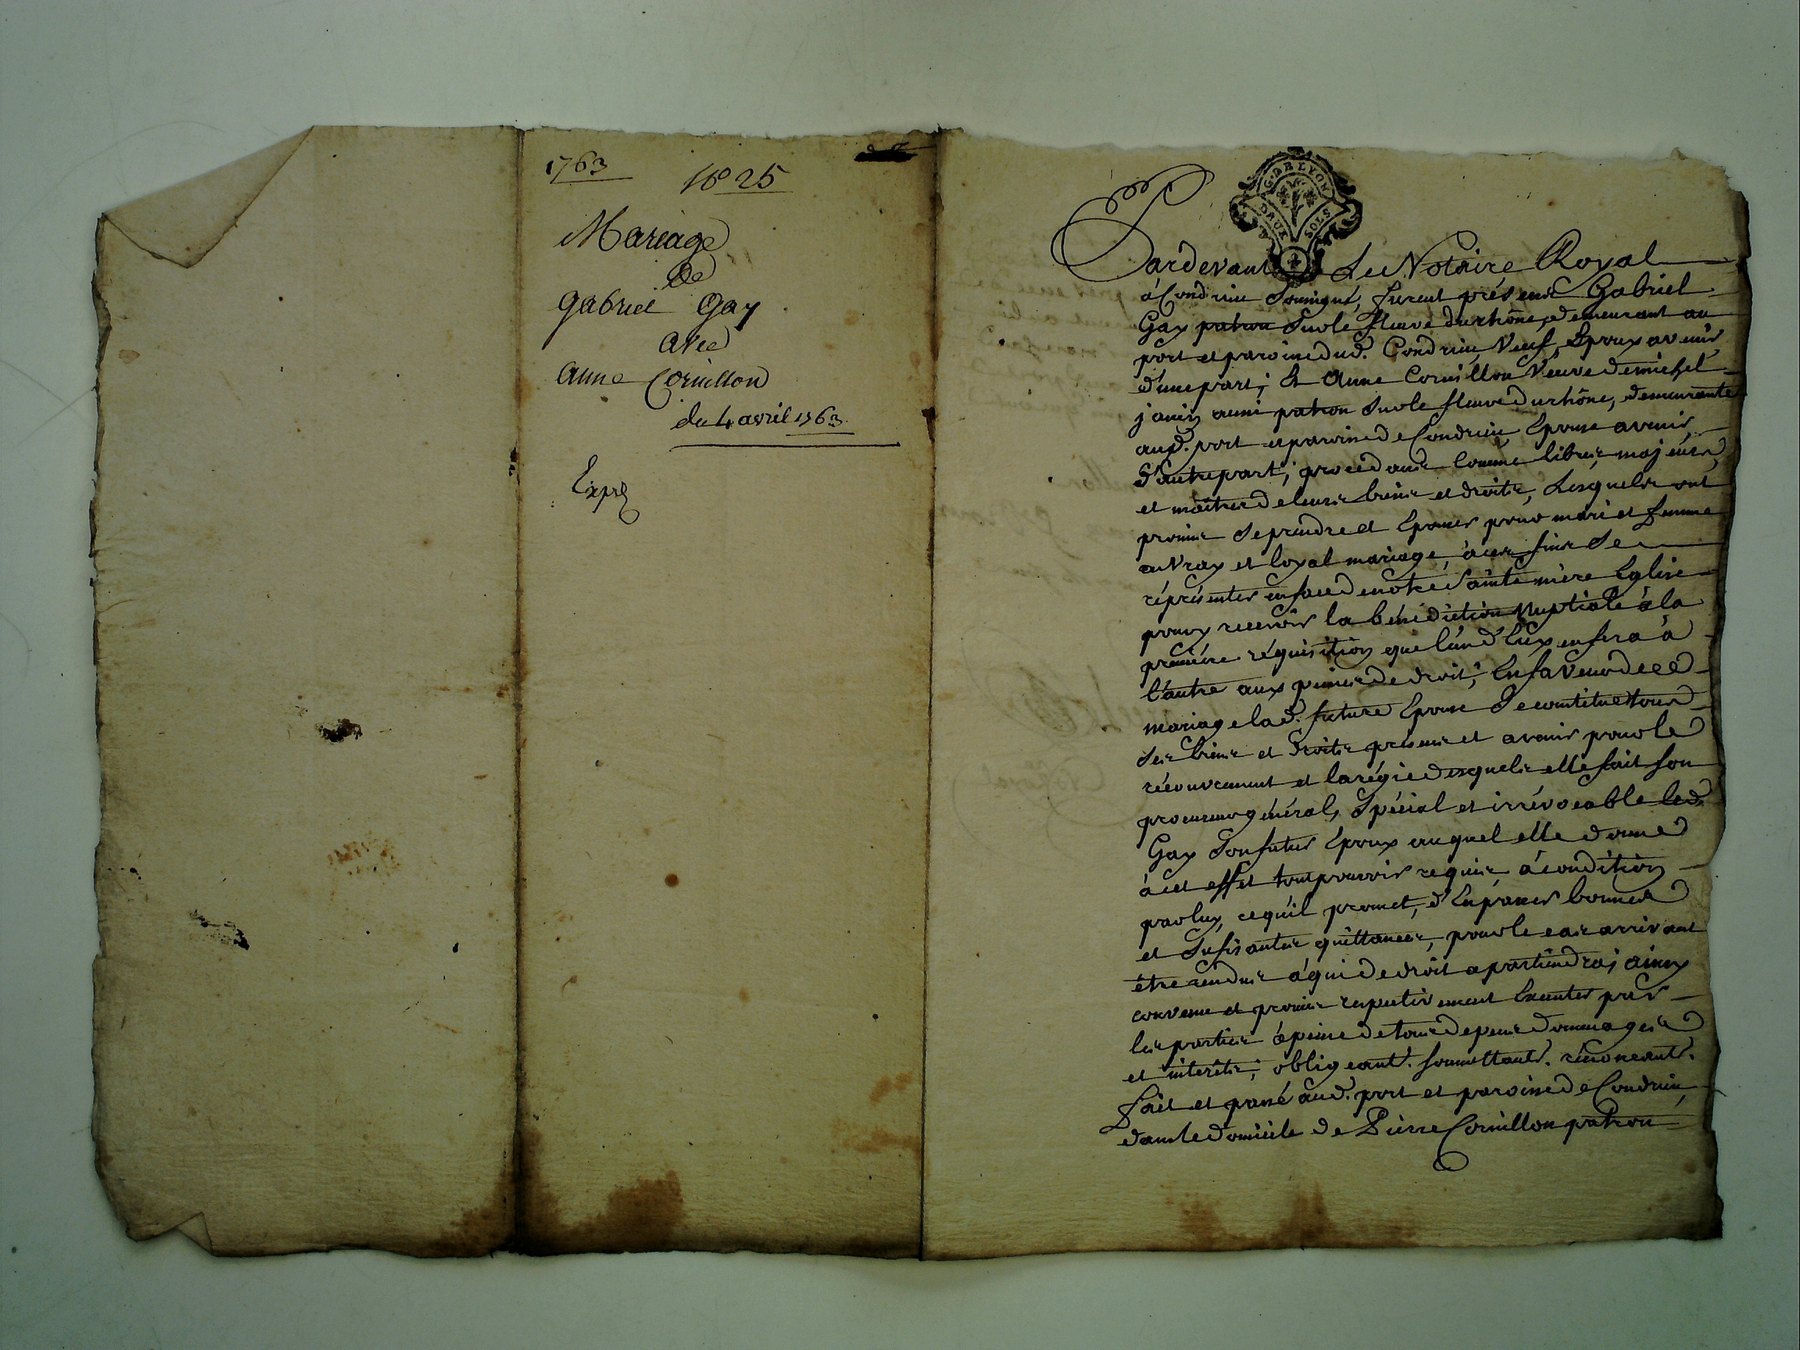 1763
No 25
Mariage
de
gabriel Gay
avec
anne Cornillon
du 4 avril 1763
Expéd
G. DE LYON
DEUX SOLS
Pardevant Le Notaire Royal
à Condrieu Soussigné, furent présents Gabriel
Gay patron Sur le fleuve du rhône, demeurant au
port et paroisse dud. Condrieu, Veuf, Epoux avenir
d'une part; Et Anne Cornillon Veuve de michel
janin aussi patron Sur le fleuve du rhône, demeurante
aud. port et paroisse de Condrieu, Epouse avenir
d'autre part; procedants comme libres, majeurs,
et maîtres de leurs biens et droits, Lesquels ont
promis se prendre et Epouser pour mari et femme
en vray et loyal mariage, à ces fins Se
réprésenter en face de notre Sainte mère Eglise
pour y recevoir la bénédiction Nuptiale à la
première réquisition que l'un d'Eux en fera à
l'autre aux peines de droit; En faveur de ce
mariage lad. future Epouse Se constitue tous
Ses biens et droits presents et avenir pour le
récouvrement et la régie desquels elle fait son
procureur général, Spécial et irrévocable led.
Gay Son futur Epoux auquel elle donne
à cet effet tout pouvoir requis à condition
par luy, ce qu'il promet, d'En passer bonnes
et Sufisantes quittances, pour le cas arrivant
être rendus à qui de droit apartiendra; ainsy
convenu et promis respectivement Executer par
les parties à peine de tous depens dommages
et interêts; obligeants. soumettants. rénonceants.
fait et passé aud. port et paroisse de Condrieu,
dans le domicile de Pierre Cornillon patron